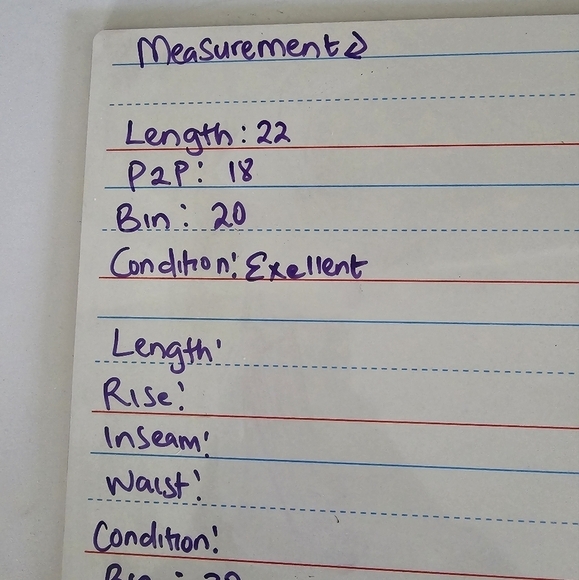 Measurements
Length: 22
P2P: 18
Bin: 20
Condition: Exellent
Length:
Rise:
Inseam:
Waist:
Condition:
Bin: 20